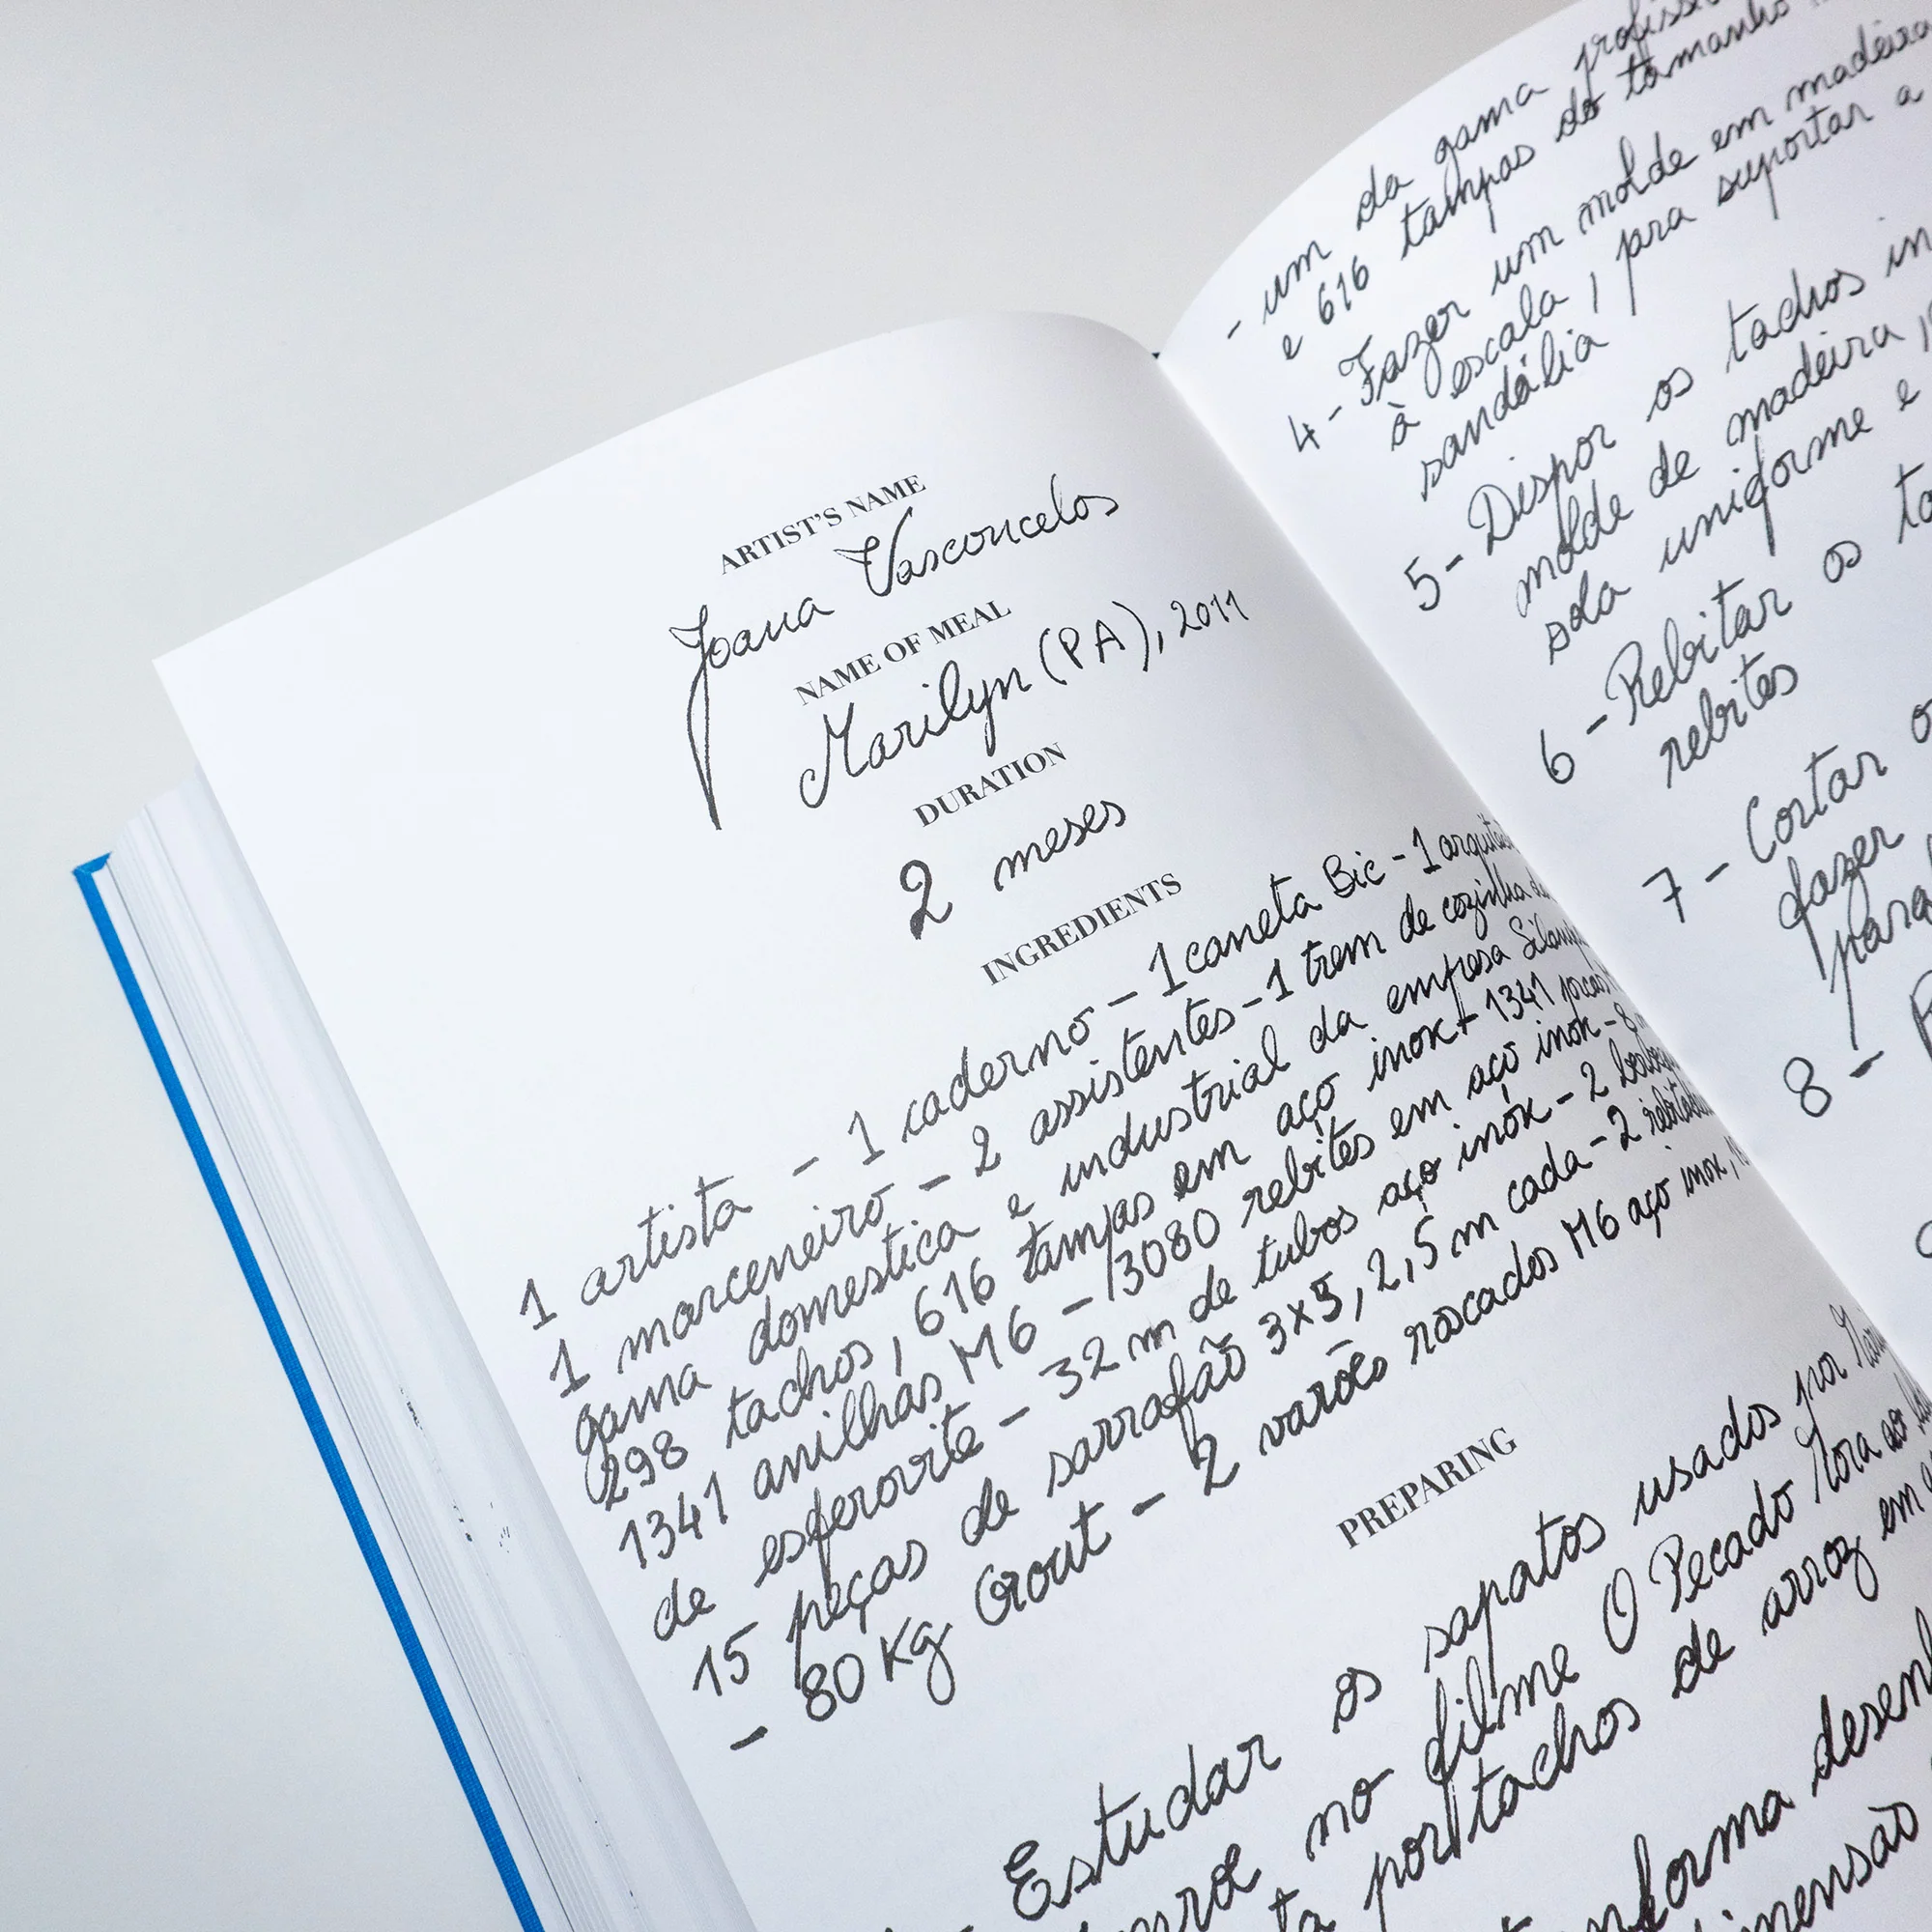 ARTIST'S NAME
Joana Vasconcelos
NAME OF MEAL
Marilyn (PA), 2011
DURATION
2 meses
INGREDIENTS
1 artista - 1 caderno - 1 caneta Bic - 1
1 marceneiro - 2 assistentes - 1 trem de cozinha
gama domestica e industrial da empresa
298 tachos, 616 tampas em aço inox - 1341
1341 anilhas M6 - 3080 rebites em aço inox - 8
de esferovite - 32 m de tubos aço inóx - 2
15 peças de sarrafão 3x5, 2,5 m cada - 2
- 80 Kg Grout - 2 varões roscados M6 aço inox,
PREPARING
Estudar os sapatos usados por
no filme O Pecado Mora ao
por tachos de arroz em
forma
- um da gama
e 616 tampas do tamanho
4 - Fazer um molde em madeira
à escala, para suportar a
sandália
5 - Dispor os tachos
molde de madeira,
sola uniforme e
6 - Rebitar os
rebites
7 - Cortar
fazer
para
8 -